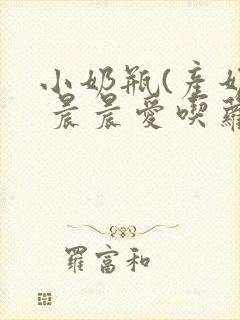 小奶瓶(産奶
晨晨愛喫蘿
羅富和